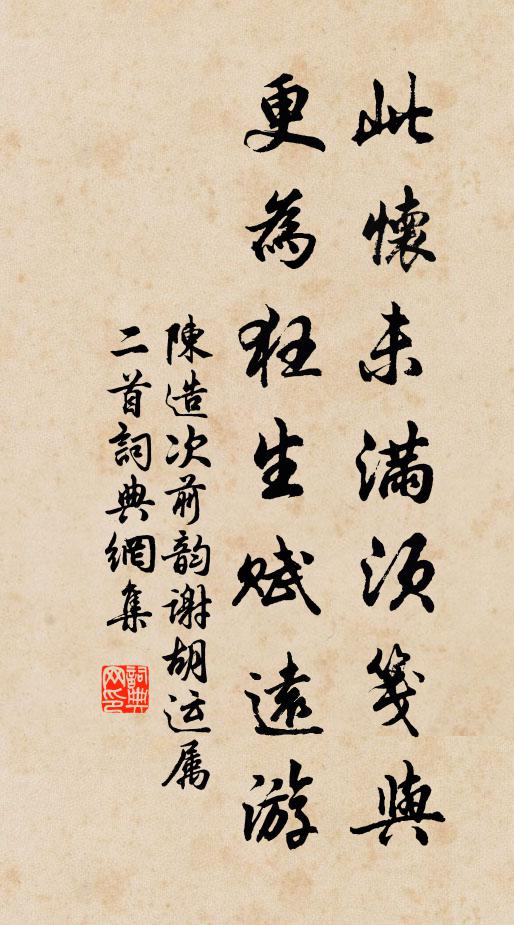 此懷未滿須箋與
更為狂生賦遠游
陳造次前韵謝胡运属
二首詞典網集
詞典网印